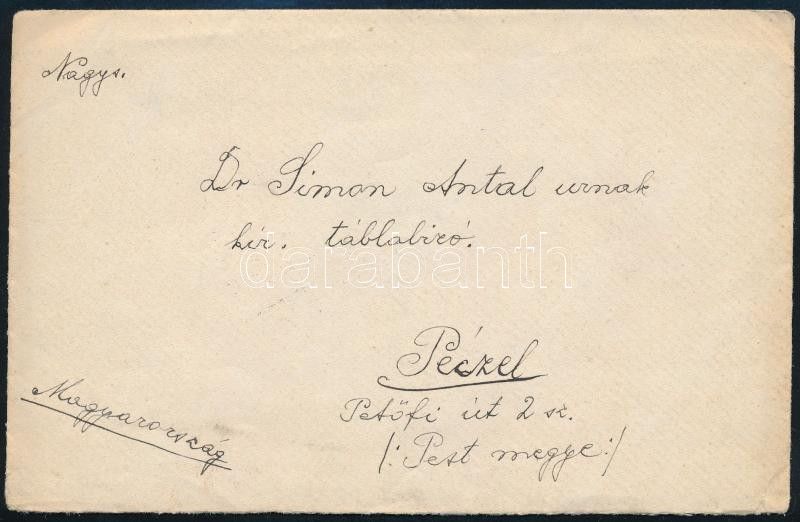 Nagys.
Dr Simon Antal urnak
kir. táblabiró.
darabanth
Péczel
Petőfi út 2 sz.
/: Pest megye :/
Magyarország